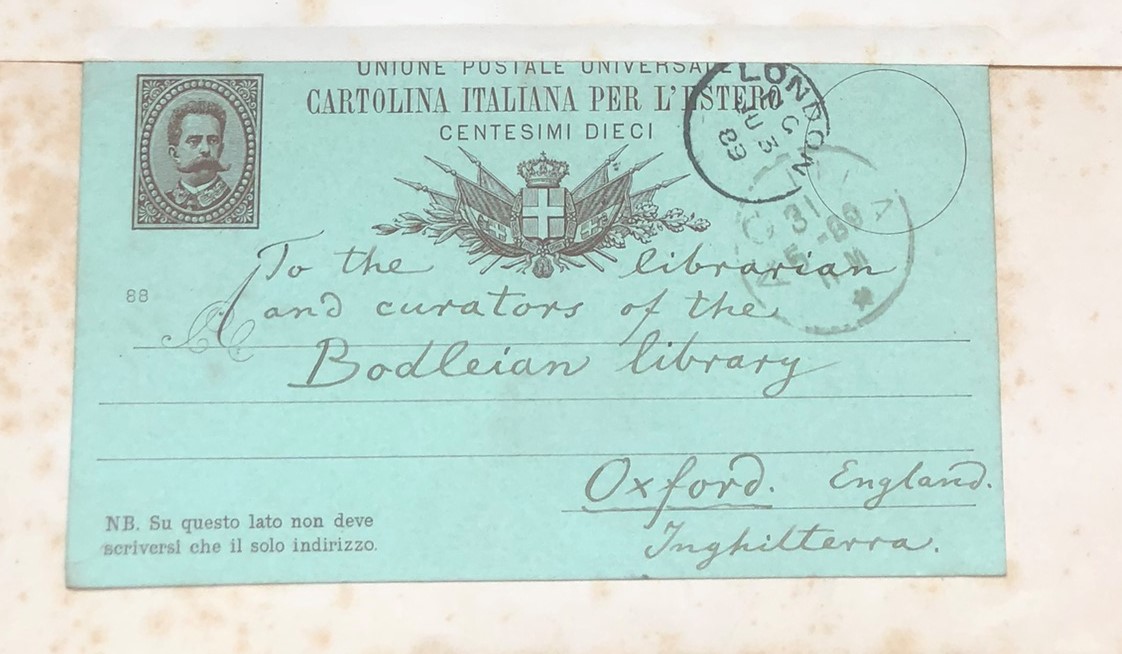 UNIONE POSTALE UNIVERSALE
CARTOLINA ITALIANA PER L'ESTERO
CENTESIMI DIECI
LONDON
JU 3
89
31
5-89
M
88
To the librarian
and curators of the
Bodleian library
Oxford. England.
Inghilterra.
NB. Su questo lato non deve
scriversi che il solo indirizzo.